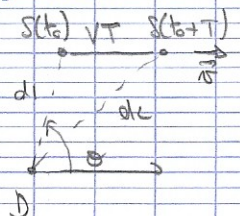 S(t₀) VT S(t₀+T)
v
d1
d2
θ
D